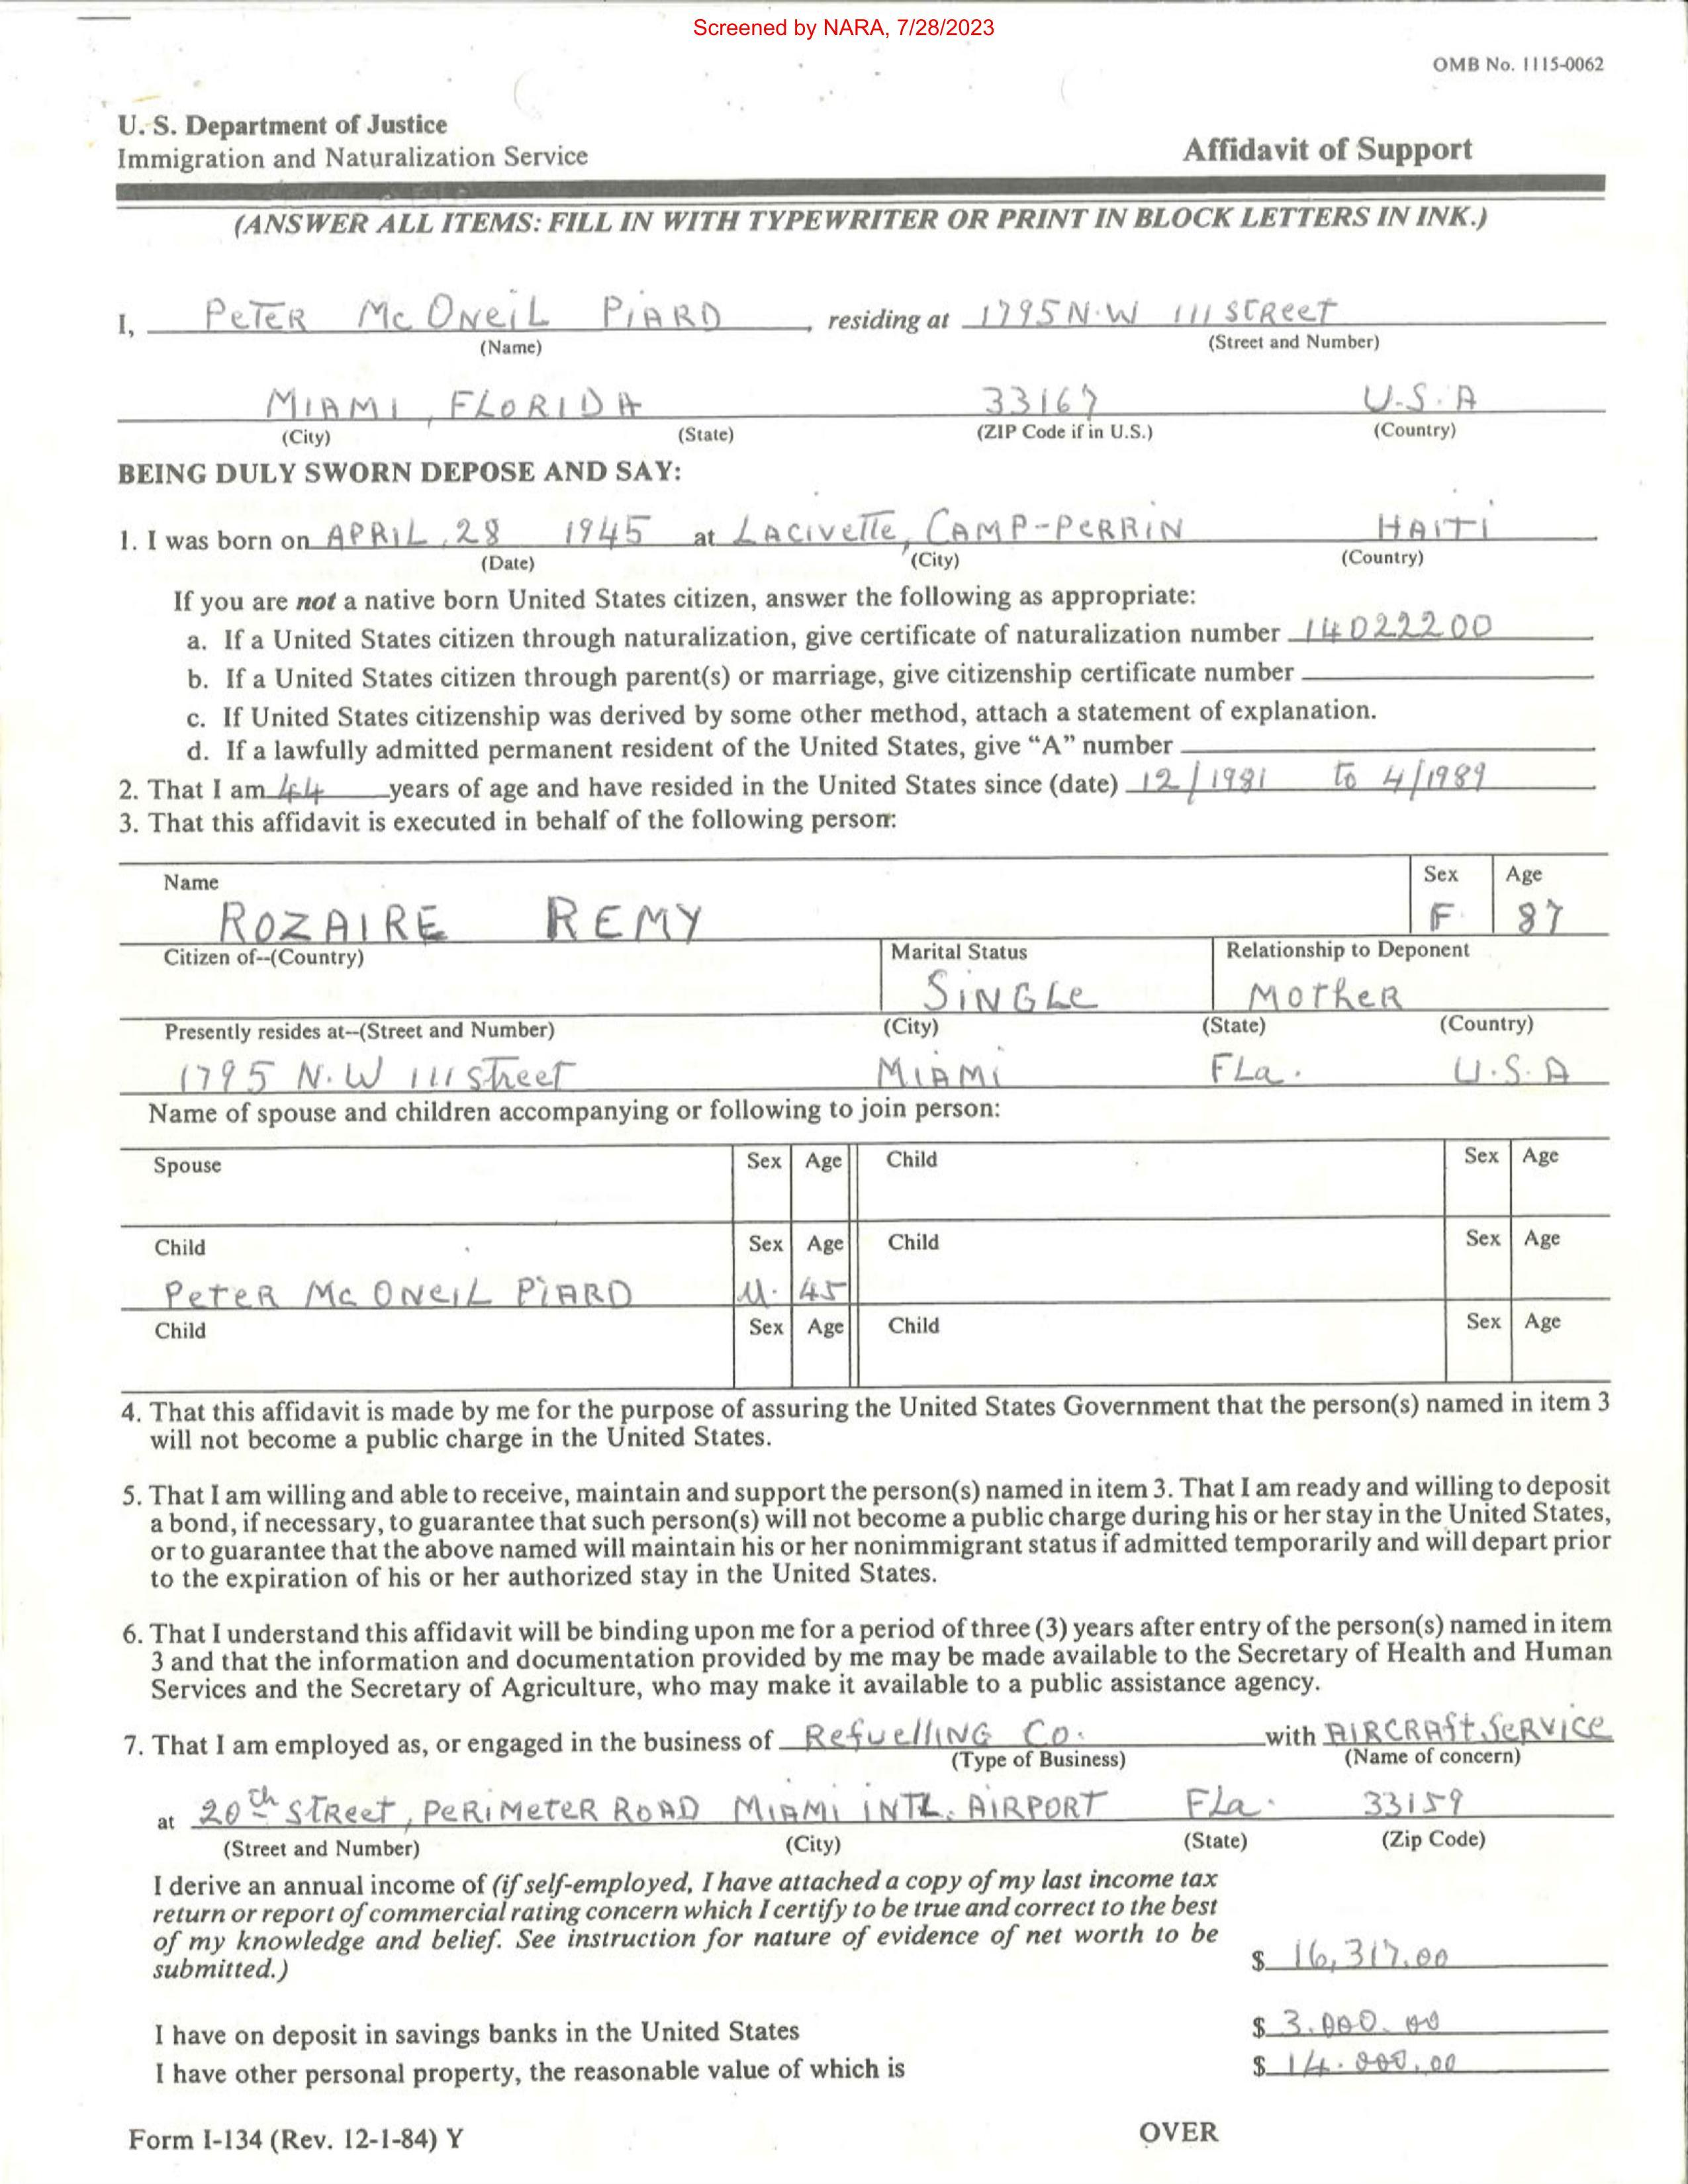 Screened by NARA, 7/28/2023
OMB No. 1115-0062
U. S. Department of Justice
Immigration and Naturalization Service
Affidavit of Support
(ANSWER ALL ITEMS: FILL IN WITH TYPEWRITER OR PRINT IN BLOCK LETTERS IN INK.)
I, PETER Mc ONeiL PiARD, residing at 1795 N.W 111 STReeT
(Name) (Street and Number)
MIAMI, FLORIDA 33167 U.S.A
(City) (State) (ZIP Code if in U.S.) (Country)
BEING DULY SWORN DEPOSE AND SAY:
1. I was born on APRIL, 28 1945 at LACIVETTe, CAMP-PERRIN HAITI
(Date) (City) (Country)
If you are not a native born United States citizen, answer the following as appropriate:
a. If a United States citizen through naturalization, give certificate of naturalization number 14022200
b. If a United States citizen through parent(s) or marriage, give citizenship certificate number
c. If United States citizenship was derived by some other method, attach a statement of explanation.
d. If a lawfully admitted permanent resident of the United States, give “A” number
2. That I am 44 years of age and have resided in the United States since (date) 12/1981 to 4/1989
3. That this affidavit is executed in behalf of the following person:
Name Sex Age
ROZAIRE REMY F. 87
Citizen of--(Country) Marital Status Relationship to Deponent
SiNGLe MotheR
Presently resides at--(Street and Number) (City) (State) (Country)
1795 N.W 111 Street MIAMI FLa. U.S.A
Name of spouse and children accompanying or following to join person:
Spouse Sex Age Child Sex Age
Child Sex Age Child Sex Age
PeteR Mc ONeiL PiARD M. 45
Child Sex Age Child Sex Age
4. That this affidavit is made by me for the purpose of assuring the United States Government that the person(s) named in item 3
will not become a public charge in the United States.
5. That I am willing and able to receive, maintain and support the person(s) named in item 3. That I am ready and willing to deposit
a bond, if necessary, to guarantee that such person(s) will not become a public charge during his or her stay in the United States,
or to guarantee that the above named will maintain his or her nonimmigrant status if admitted temporarily and will depart prior
to the expiration of his or her authorized stay in the United States.
6. That I understand this affidavit will be binding upon me for a period of three (3) years after entry of the person(s) named in item
3 and that the information and documentation provided by me may be made available to the Secretary of Health and Human
Services and the Secretary of Agriculture, who may make it available to a public assistance agency.
7. That I am employed as, or engaged in the business of RefuellING Co. with AIRCRAft SeRVice
(Type of Business) (Name of concern)
at 20th STReet, PERiMeteR ROAD MIAMI iNTL. AIRPORT FLa. 33159
(Street and Number) (City) (State) (Zip Code)
I derive an annual income of (if self-employed, I have attached a copy of my last income tax
return or report of commercial rating concern which I certify to be true and correct to the best
of my knowledge and belief. See instruction for nature of evidence of net worth to be
submitted.) $ 16,317.00
I have on deposit in savings banks in the United States $ 3.000.00
I have other personal property, the reasonable value of which is $ 14.000.00
Form I-134 (Rev. 12-1-84) Y OVER